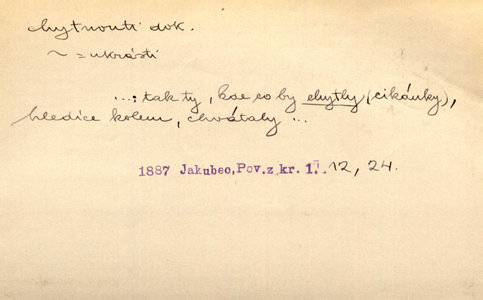 chytnouti dok.
~ = ukrásti
...; tak ty, kde co by chytly (cikánky),
hledíce kolem, chvátaly ...
1887 Jakubec, Pov. z kr. 1. 12, 24.